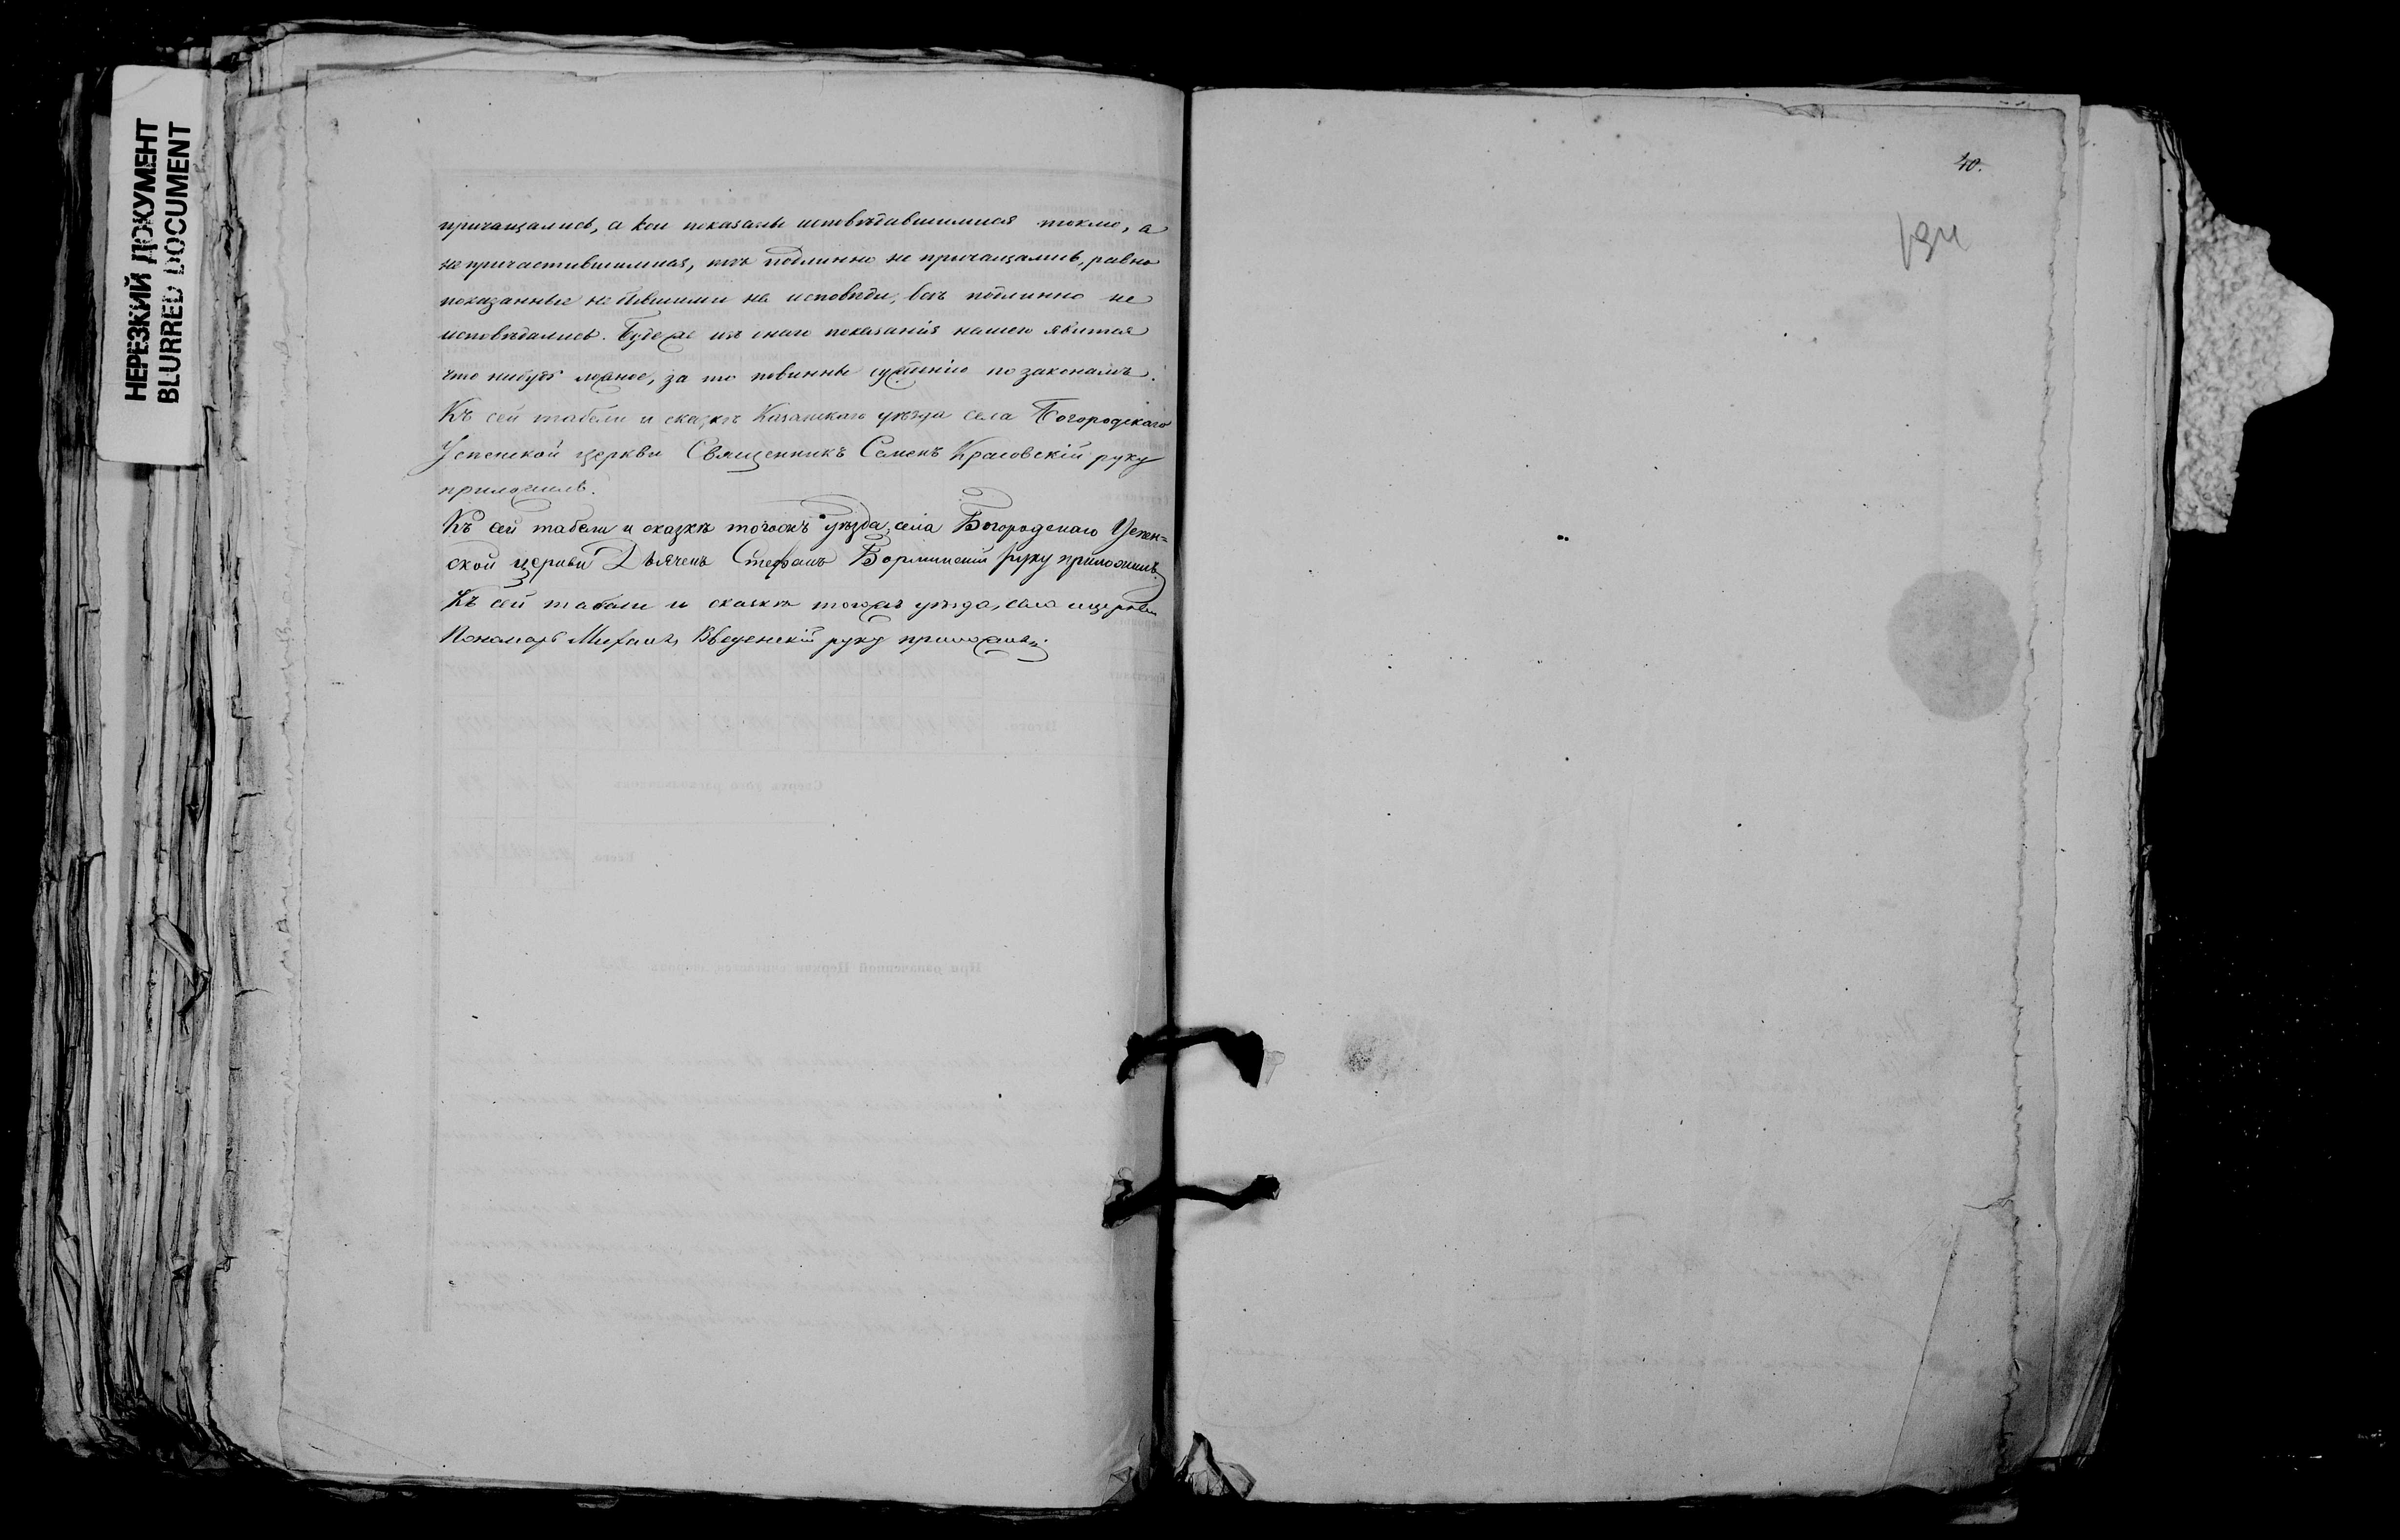 НЕРЕЗКИЙ ДОКУМЕНТ
BLURRED DOCUMENT
причащались, а кои показаны исповѣдавшимися токмо, а
не причастившимися, тѣ подлинно не причащались, равно
показанные не бывшими на исповѣди, всѣ подлинно не
исповѣдались. Буде же изъ онаго показанія нашего явится
что нибудь ложное, за то повинны сужденію по законамъ.
Къ сей табели и сказкѣ Казанскаго уѣзда села Богородскаго
Успенской церкви Священникъ Семенъ Красовскій руку
приложилъ.
Къ сей табели и сказкѣ тогожъ уѣзда, села Богородскаго Успен=
ской церкви Дьячекъ Стефанъ Борминскій руку приложилъ
Къ сей табели и сказкѣ тогожъ уѣзда, села и церкви
Пономарь Михаилъ Введенскій руку приложилъ
40.